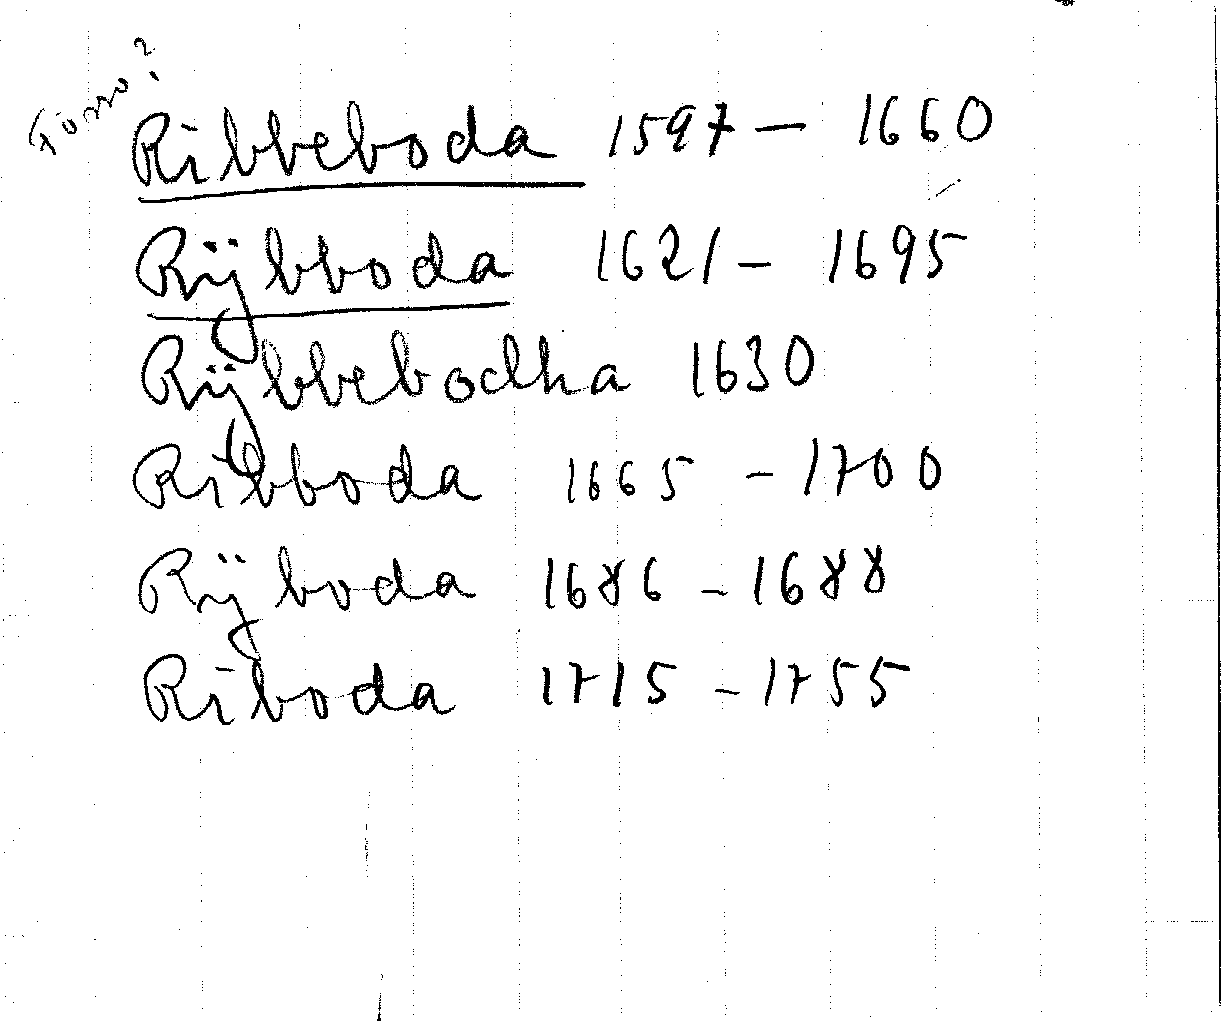 Ribbeboda 1597 – 1660
Rijbboda 1621 – 1695
Rijbbebodha 1630
Ribboda 1665 – 1700
Rijboda 1686 – 1688
Riboda 1715 – 1755